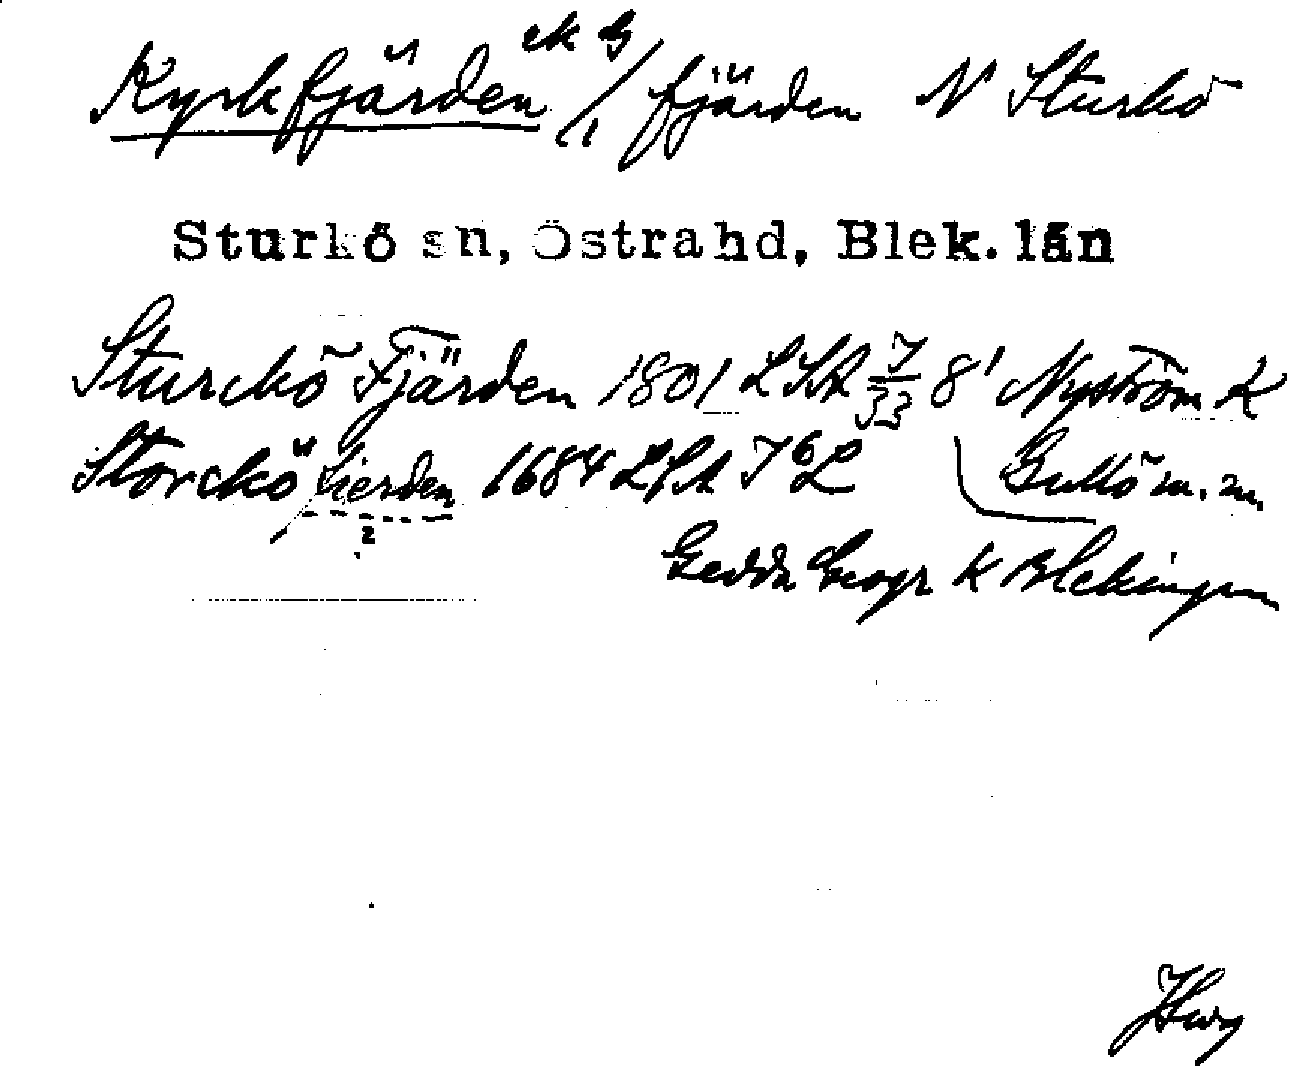 Kyrkfjärden ek G / fjärden N Sturkö
Sturkö sn, Östra hd, Blek. län
Sturckö Fjärden 1801 LSA J/33 8¹ Nyström K
Storckö fierden 1684 LSA J⁶L Gullö m. m.
2
Gedda Geogr K Blekingen